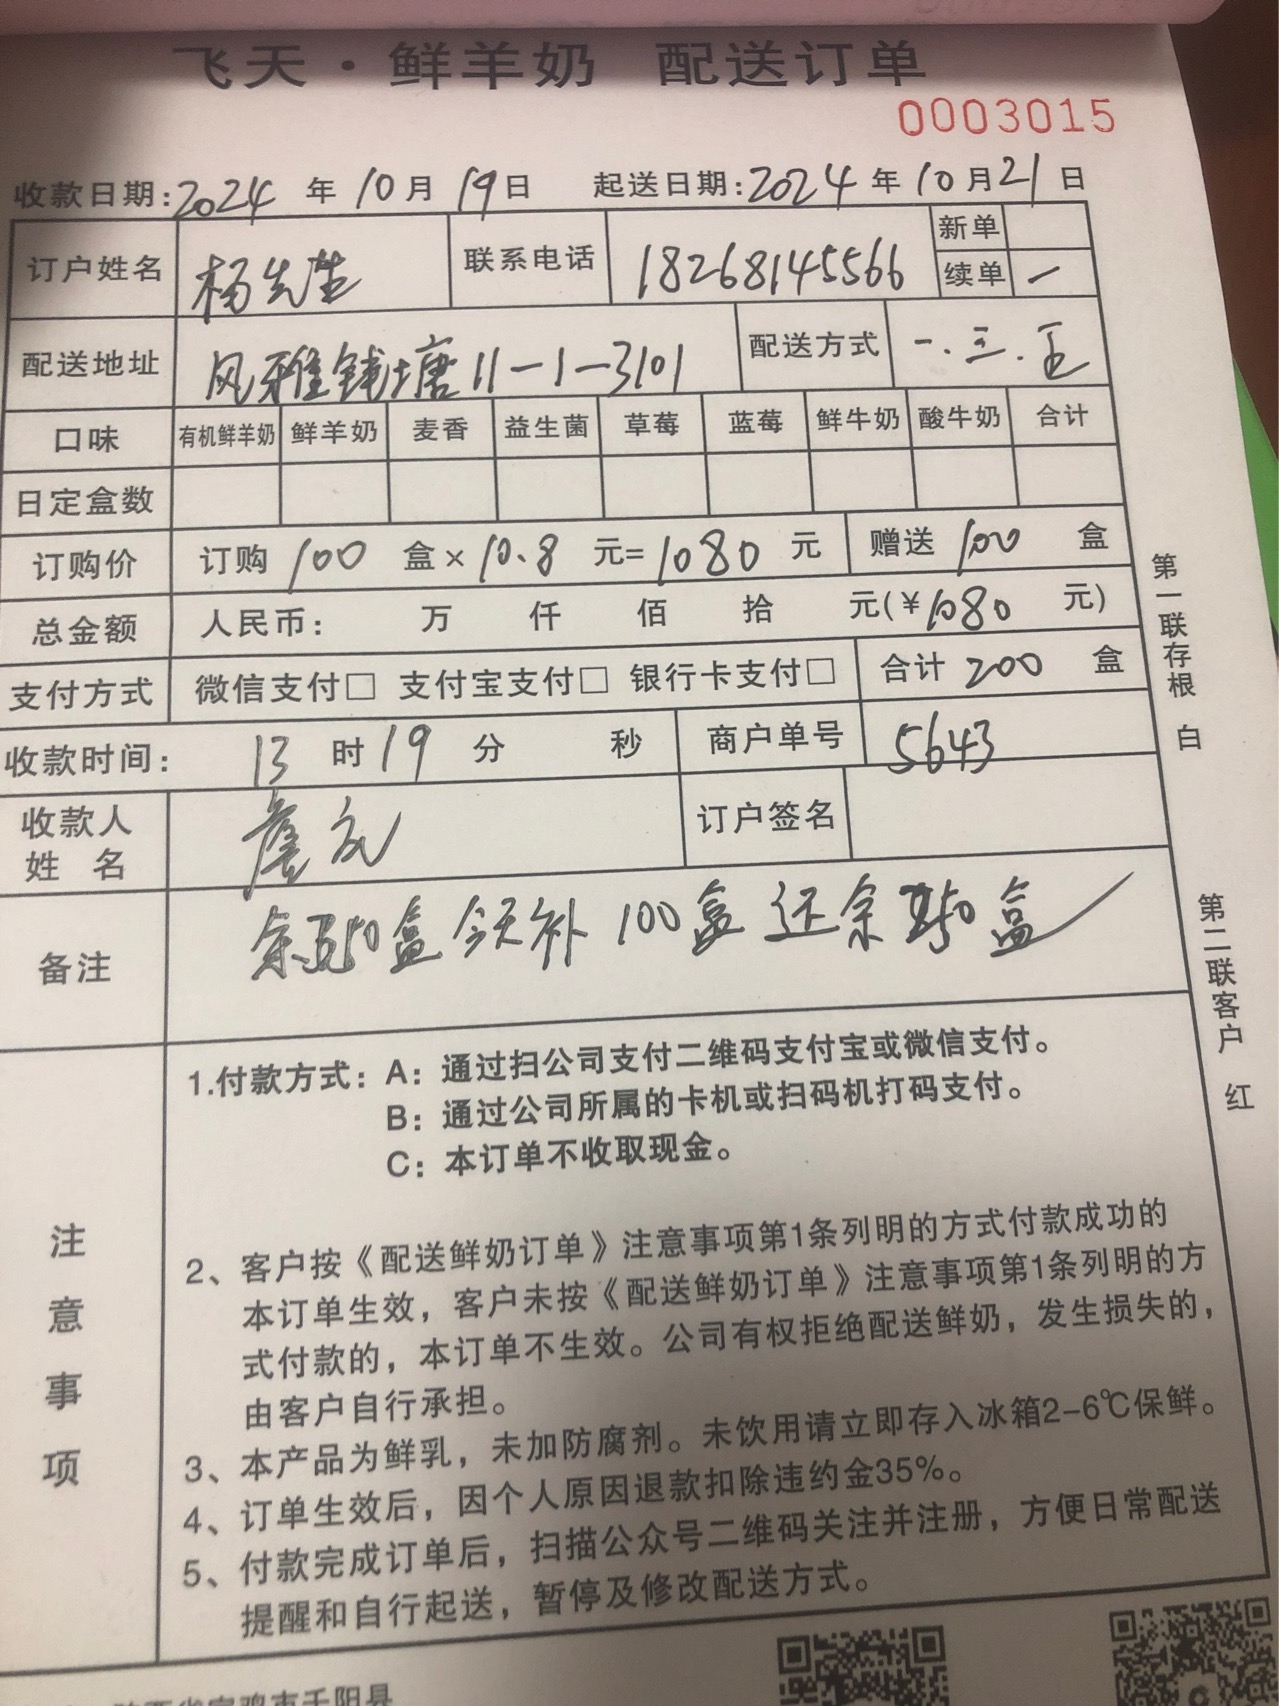 飞天·鲜羊奶 配送订单
0003015
收款日期:2024 年 10 月 19 日 起送日期:2024 年 10 月 21 日
订户姓名 杨先生 联系电话 18268145566 新单
续单 一
配送地址 风雅钱塘11-1-3101 配送方式 一.三.五
口味 有机鲜羊奶 鲜羊奶 麦香 益生菌 草莓 蓝莓 鲜牛奶 酸牛奶 合计
日定盒数
订购价 订购 100 盒×10.8 元=1080 元 赠送 100 盒
总金额 人民币: 万 仟 佰 拾 元(¥1080 元)
支付方式 微信支付□ 支付宝支付□ 银行卡支付□ 合计 200 盒
收款时间: 13 时 19 分 秒 商户单号 5643
收款人
姓 名 订户签名
备注 余 盒 今天补 100 盒 还余 盒
注意事项
1.付款方式: A: 通过扫公司支付二维码支付宝或微信支付。
B: 通过公司所属的卡机或扫码机打码支付。
C: 本订单不收取现金。
2、客户按《配送鲜奶订单》注意事项第1条列明的方式付款成功的
本订单生效，客户未按《配送鲜奶订单》注意事项第1条列明的方
式付款的，本订单不生效。公司有权拒绝配送鲜奶，发生损失的，
由客户自行承担。
3、本产品为鲜乳，未加防腐剂。未饮用请立即存入冰箱2-6℃保鲜。
4、订单生效后，因个人原因退款扣除违约金35%。
5、付款完成订单后，扫描公众号二维码关注并注册，方便日常配送
提醒和自行起送，暂停及修改配送方式。
第一联存根 白
第二联客户 红
陕西省宝鸡市千阳县